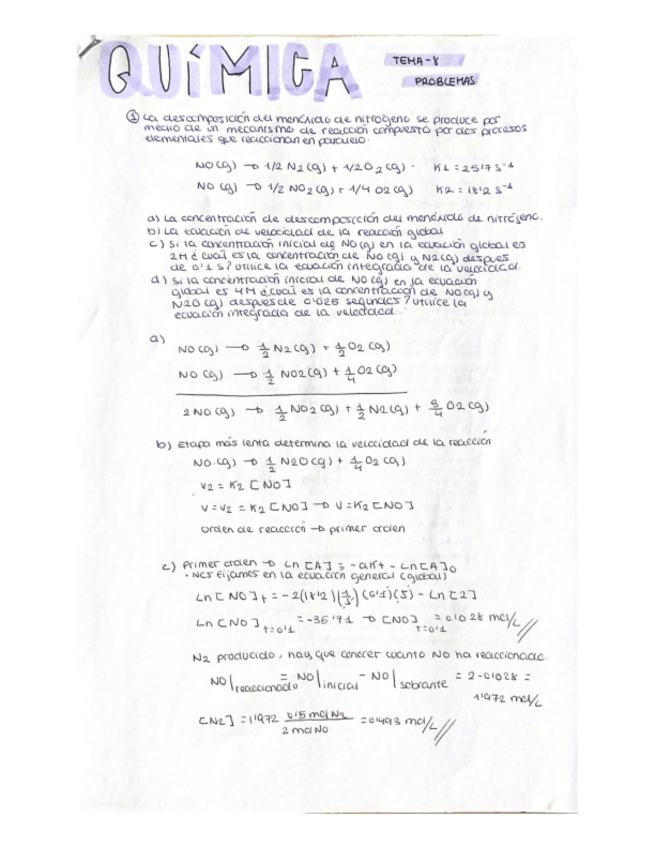 QUÍMICA
TEMA-8
PROBLEMAS
① La descomposición del monóxido de nitrógeno se produce por
medio de un mecanismo de reacción compuesto por dos procesos
elementales que reaccionan en paralelo.
NO(g) → 1/2 N2(g) + 1/2 O2(g). K1 = 25'7 s⁻¹
NO (g) → 1/2 NO2(g) + 1/4 O2(g) K2 = 18'2 s⁻¹
a) La concentración de descomposición del monóxido de nitrógeno.
b) La ecuación de velocidad de la reacción global
c) Si la concentración inicial de NO(g) en la ecuación global es
2M ¿cuál es la concentración de NO(g) y N2(g) después
de 0'1 s? utilice la ecuación integrada de la velocidad.
d) Si la concentración inicial de NO(g) en la ecuación
global es 4M ¿cuál es la concentración de NO(g) y
N2O(g) después de 0'025 segundos? utilice la
ecuación integrada de la velocidad.
a)
NO(g) → 1/2 N2(g) + 1/2 O2(g)
NO(g) → 1/2 NO2(g) + 1/4 O2(g)
2NO(g) → 1/2 NO2(g) + 1/2 N2(g) + 3/4 O2(g)
b) Etapa más lenta determina la velocidad de la reacción
NO(g) → 1/2 N2O(g) + 1/4 O2(g)
v2 = K2 [NO]
v = v2 = K2 [NO] → v = K2 [NO]
orden de reacción → primer orden
c) Primer orden → Ln[A] = -aKt - Ln[A]o
• Nos fijamos en la ecuación general (global)
Ln[NO]t = -2(18'2)(1/s)(0'1)(s) - Ln[2]
Ln[NO] t=0'1 = -35'71 → [NO] t=0'1 = 0'028 mol/L
N2 producido, hay que conocer cuanto NO ha reaccionado.
NO|reaccionado = NO|inicial - NO|sobrante = 2 - 0'028 =
1'972 mol/L
[N2] = 1'972 0'5 mol N2 / 2 mol NO = 0'493 mol/L